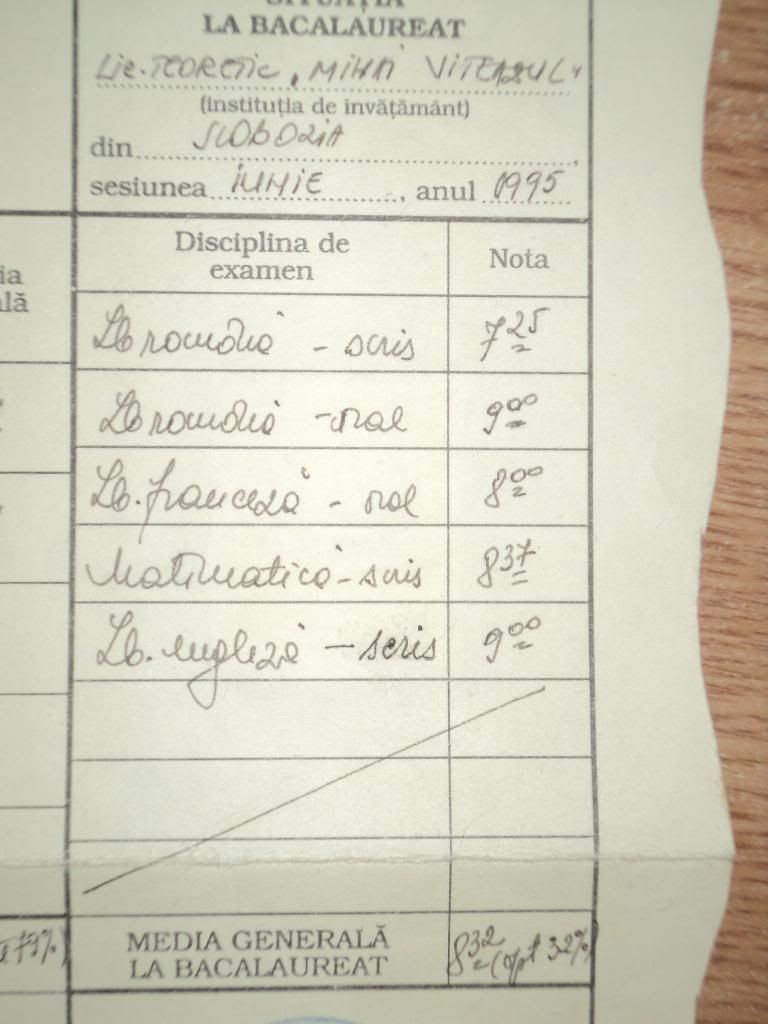 SITUAȚIA
LA BACALAUREAT
Lic. TEORETIC „MIHAI VITEAZUL"
(instituția de învățământ)
din SLOBOZIA
sesiunea IUNIE, anul 1995
Disciplina de
examen
Nota
Lb română - scris 7 25
Lb română - oral 9 00
Lb. franceză - oral 8 00
Matematică - scris 8 37
Lb. engleză - scris 9 00
MEDIA GENERALĂ
LA BACALAUREAT
8 32 (opt 32%)